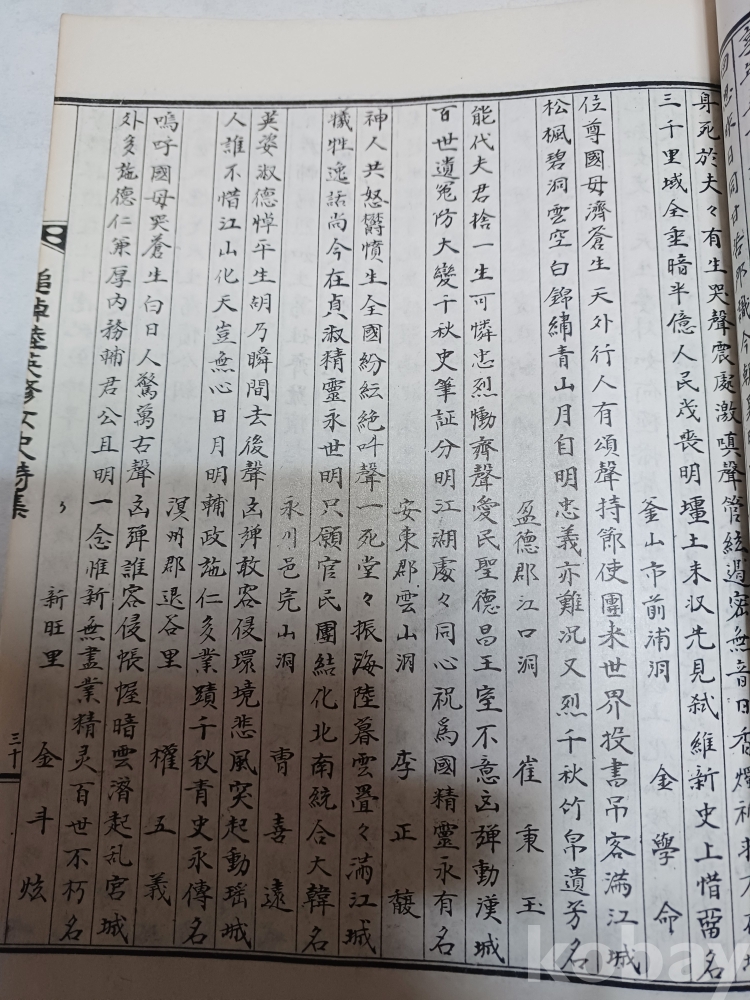 身死於夫々有生哭聲震處激嗔聲管絃遏密無音日香燭神來
三千里域全垂暗半億人民茂喪明壃土未収先見弑維新史上惜留名
釜山市前浦洞 金學命
位尊國母濟蒼生天外行人有頌聲持節使團来世界投書吊客滿江城
松楓碧洞雲空白錦繡青山月自明忠義亦難况又烈千秋竹帛遺芳名
盈德郡江口洞 崔秉玉
能代夫君捨一生可憐忠烈慟齊聲愛民聖德昌王室不意凶弾動漢城
百世遺冤防大變千秋史筆証分明江湖處々同心祝爲國精靈永有名
安東郡雲山洞 李正馥
神人共怒欝憤生全國紛紜絶叫聲一死堂々振海陸暮雲疊々滿江城
犠牲逸話尚今在貞淑精靈永世明只願官民團結化北南統合大韓名
永川邑完山洞 曺喜遠
英姿淑德悼平生胡乃瞬間去後聲凶弾敢容侵環境悲風突起動瑶城
人誰不惜江山化天豈無心日月明輔政施仁多業蹟千秋青史永傳名
溟州郡退谷里 權五義
嗚呼國母哭蒼生白日人驚萬古聲凶弾誰容侵帳幄暗雲潛起乱宮城
外多施德仁兼厚內務輔君公且明一念惟新無盡業精灵百世不朽名
〃 新旺里 金斗炫
追悼陸英修女史詩集 三十
kobay